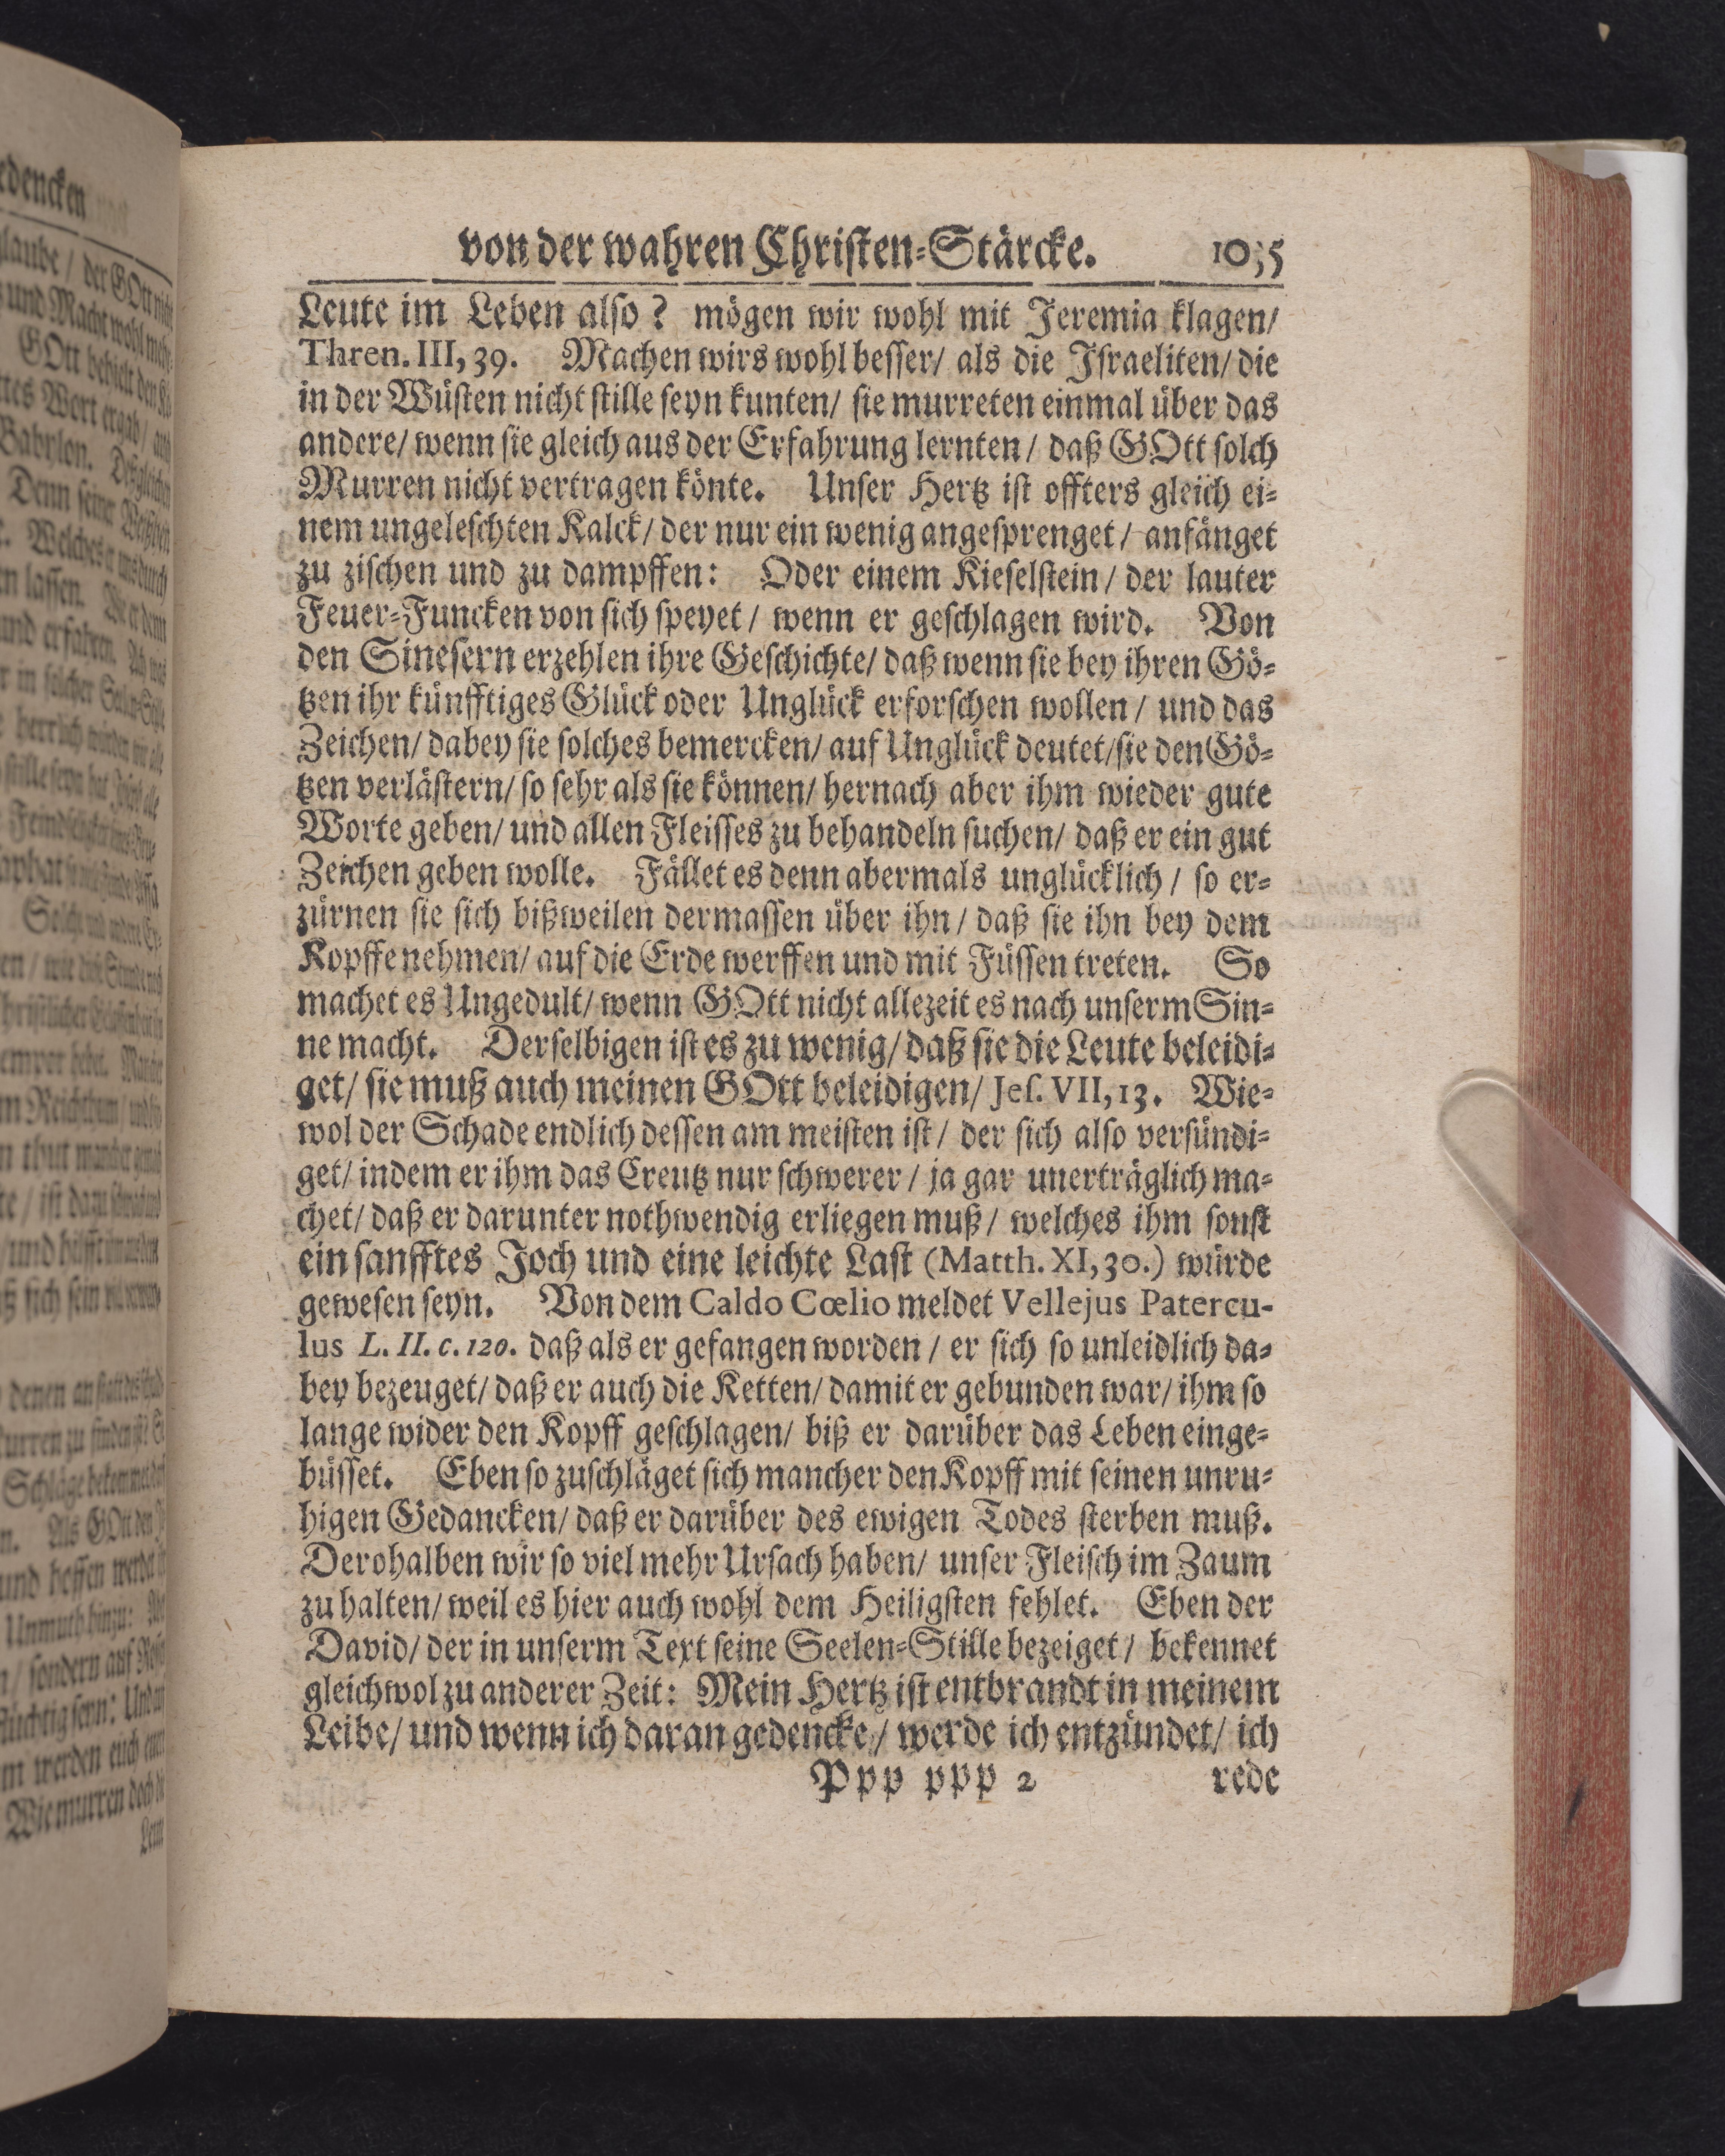 von der wahren Christen-Stärcke. 1035
Leute im Leben also? mögen wir wohl mit Jeremia klagen/
Thren. III, 39. Machen wirs wohl besser/ als die Israeliten/ die
in der Wüsten nicht stille seyn kunten/ sie murreten einmal über das
andere/ wenn sie gleich aus der Erfahrung lernten/ daß GOtt solch
Murren nicht vertragen könte. Unser Hertz ist offters gleich ei-
nem ungeleschten Kalck/ der nur ein wenig angesprenget/ anfänget
zu zischen und zu dampffen: Oder einem Kieselstein/ der lauter
Feuer-Funcken von sich speyet/ wenn er geschlagen wird. Von
den Sinesern erzehlen ihre Geschichte/ daß wenn sie bey ihren Gö-
tzen ihr künfftiges Glück oder Unglück erforschen wollen/ und das
Zeichen/ dabey sie solches bemercken/ auf Unglück deutet/ sie den Gö-
tzen verlästern/ so sehr als sie können/ hernach aber ihm wieder gute
Worte geben/ und allen Fleisses zu behandeln suchen/ daß er ein gut
Zeichen geben wolle. Fället es denn abermals unglücklich/ so er-
zürnen sie sich bißweilen dermassen über ihn/ daß sie ihn bey dem
Kopffe nehmen/ auf die Erde werffen und mit Füssen treten. So
machet es Ungedult/ wenn GOtt nicht allezeit es nach unserm Sin-
ne macht. Derselbigen ist es zu wenig/ daß sie die Leute beleidi-
get/ sie muß auch meinen GOtt beleidigen/ Jes. VII, 13. Wie-
wol der Schade endlich dessen am meisten ist/ der sich also versündi-
get/ indem er ihm das Creutz nur schwerer/ ja gar unerträglich ma-
chet/ daß er darunter nothwendig erliegen muß/ welches ihm sonst
ein sanfftes Joch und eine leichte Last (Matth. XI, 30.) würde
gewesen seyn. Von dem Caldo Cœlio meldet Vellejus Patercu-
lus L. II. c. 120. daß als er gefangen worden/ er sich so unleidlich da-
bey bezeuget/ daß er auch die Ketten/ damit er gebunden war/ ihm so
lange wider den Kopff geschlagen/ biß er darüber das Leben einge-
büsset. Eben so zuschläget sich mancher den Kopff mit seinen unru-
higen Gedancken/ daß er darüber des ewigen Todes sterben muß.
Derohalben wir so viel mehr Ursach haben/ unser Fleisch im Zaum
zu halten/ weil es hier auch wohl dem Heiligsten fehlet. Eben der
David/ der in unserm Text seine Seelen-Stille bezeiget/ bekennet
gleichwol zu anderer Zeit: Mein Hertz ist entbrandt in meinem
Leibe/ und wenn ich daran gedencke/ werde ich entzündet/ ich
Ppp ppp 2 rede